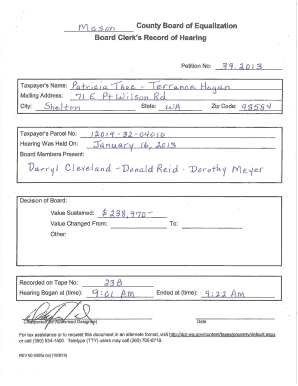 Mason County Board of Equalization
Board Clerk's Record of Hearing
Petition No: 39.2013
Taxpayer's Name: Patricia Thoe - Terrance Hogan
Mailing Address: 71 E Pt Wilson Rd
City: Shelton State: WA Zip Code: 98584
Taxpayer's Parcel No: 12019-32-04010
Hearing Was Held On: January 16, 2013
Board Members Present:
Darryl Cleveland - Donald Reid - Dorothy Meyer
Decision of Board:
Value Sustained: $238,970-
Value Changed From: To:
Other:
Recorded on Tape No: 23B
Hearing Began at (time): 9:01 Am Ended at (time): 9:22 Am
Chairperson (or Authorized Designee) Date
For tax assistance or to request this document in an alternate format, visit http://dor.wa.gov/content/taxes/property/default.aspx
or call (360) 534-1400. Teletype (TTY) users may call (360) 705-6718.